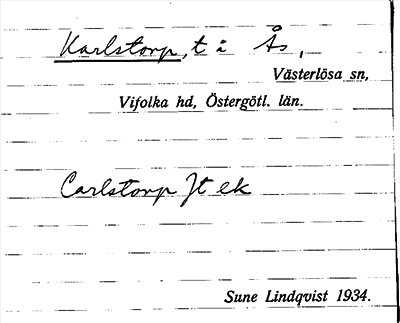 Karlstorp, t å Ås,
Västerlösa sn,
Vifolka hd, Östergötl. län.
Carlstorp Jt ek
Sune Lindqvist 1934.